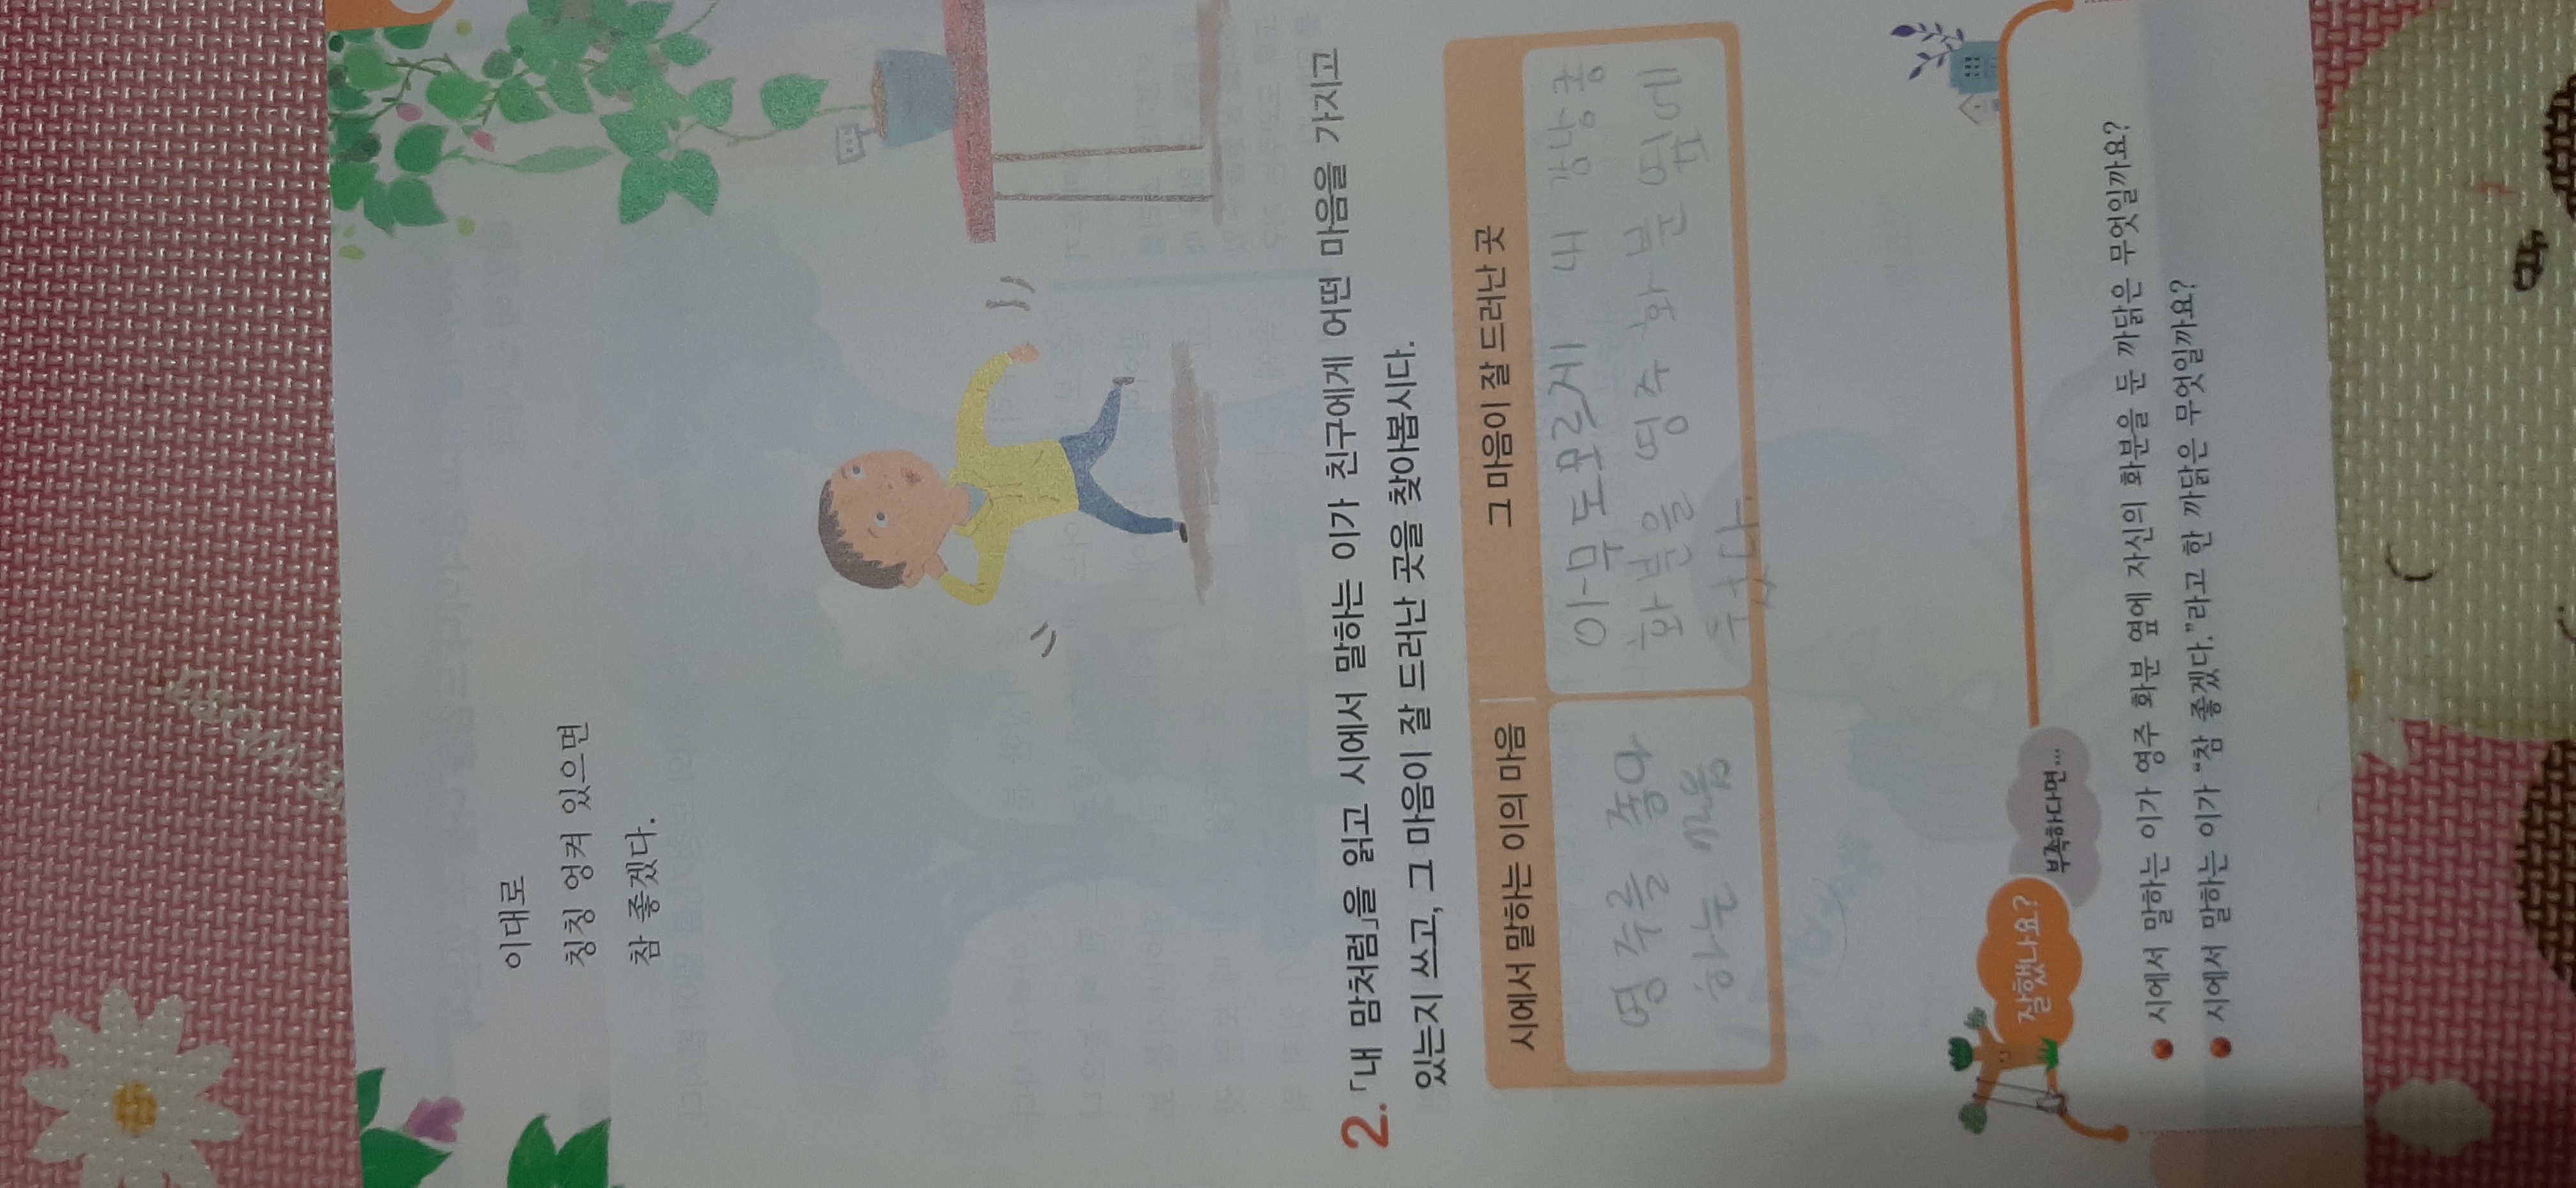 이대로
칭칭 엉켜 있으면
참 좋겠다.
2. 「내 맘처럼」을 읽고 시에서 말하는 이가 친구에게 어떤 마음을 가지고
있는지 쓰고, 그 마음이 잘 드러난 곳을 찾아봅시다.
시에서 말하는 이의 마음
그 마음이 잘 드러난 곳
영주를 좋아
하는 마음
아무도모르게 내 강낭콩
화분을 영주화분 옆에
두었다.
잘했나요?
부족하다면...
시에서 말하는 이가 영주 화분 옆에 자신의 화분을 둔 까닭은 무엇일까요?
시에서 말하는 이가 “참 좋겠다.”라고 한 까닭은 무엇일까요?